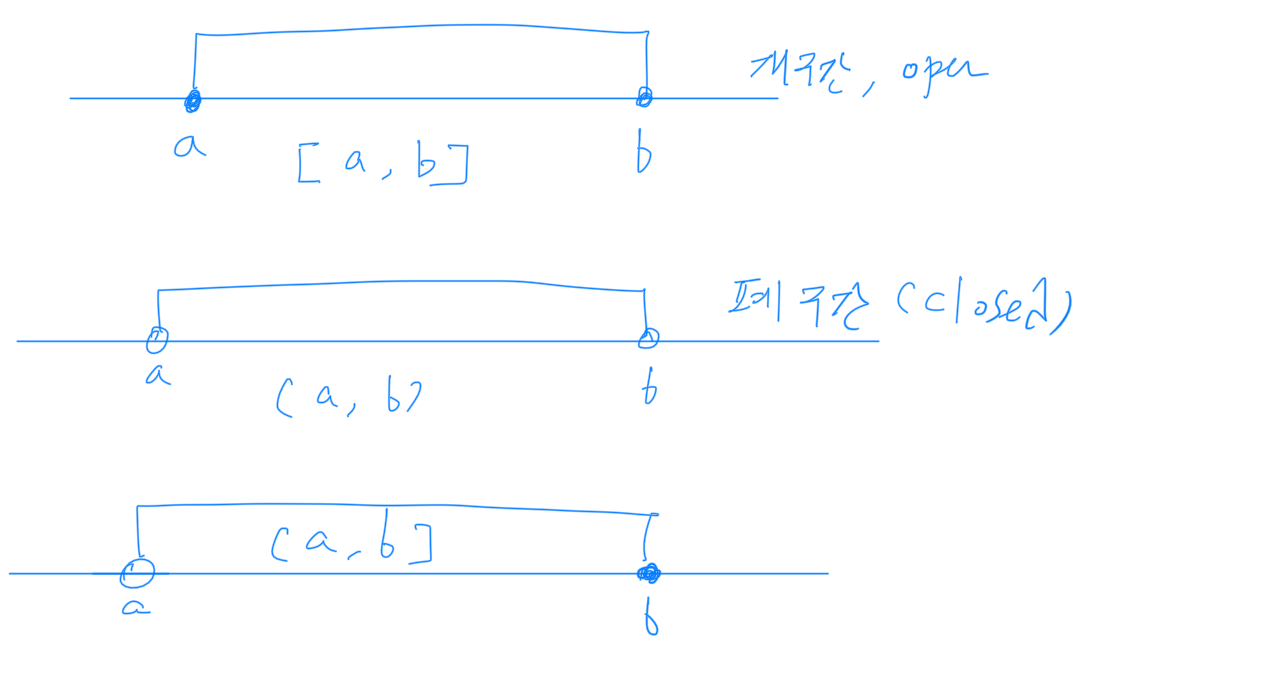 개구간, open
a
[a, b]
b
폐구간 (closed)
a
(a, b)
b
(a, b]
a
b